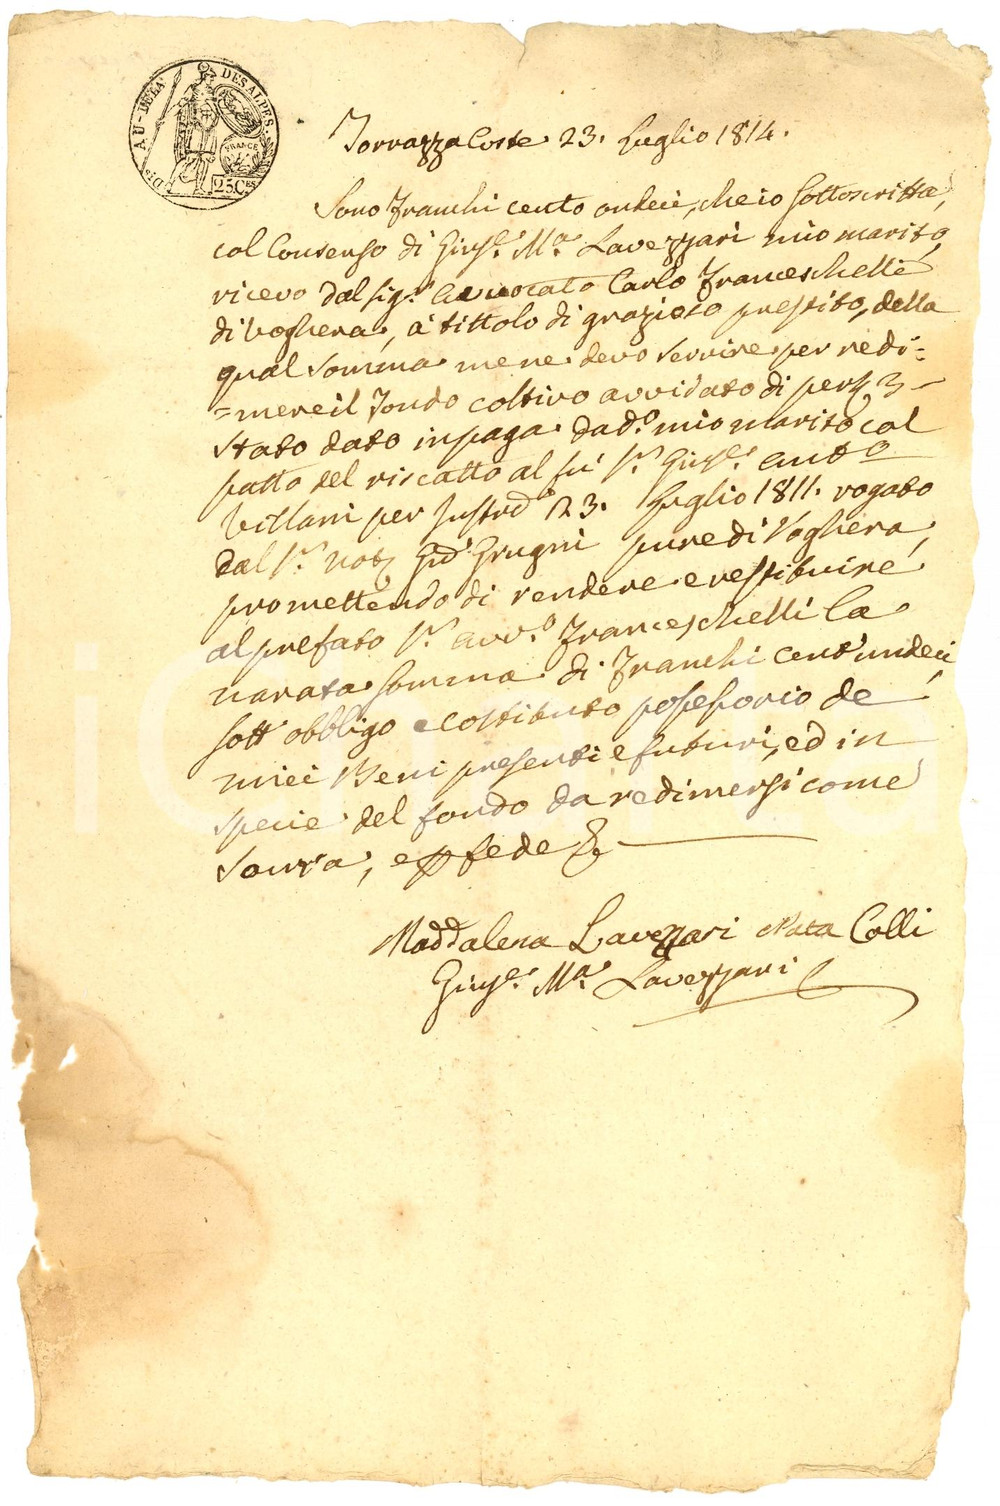 DIP. AU-DELÀ DES ALPES.
FRANCE
25 C.es
Torrazza Coste 23. Luglio 1814.
Sono Franchi cento undeci, che io Sottoscritta,
col Consenso di Gius.e M.a Lavezzari mio marito,
ricevo dal sig.r Avvocato Carlo Franceschelli
di Voghera, à tittolo di grazioso prestito, della
qual somma me ne devo servire per redi=
=mere il Fondo coltivo avvidato di pert. 3
stato dato in paga da d.o mio marito col
patto del riscatto al fù S.r Gius.e Ant.o
Villani per Instro 23. Luglio 1811. rogato
dal S.r Not. Grugni pure di Voghera,
promettendo di rendere e restituire
al prefato S.r Avv.o Franceschelli la
narrata somma di Franchi cent'undeci
sott' obbligo e costituto possessorio de
miei Beni presenti e futuri, ed in
specie del fondo da redimersi come
Sovra, e p fede &
Maddalena Lavezzari Nata Colli
Gius.e M.a Lavezzari